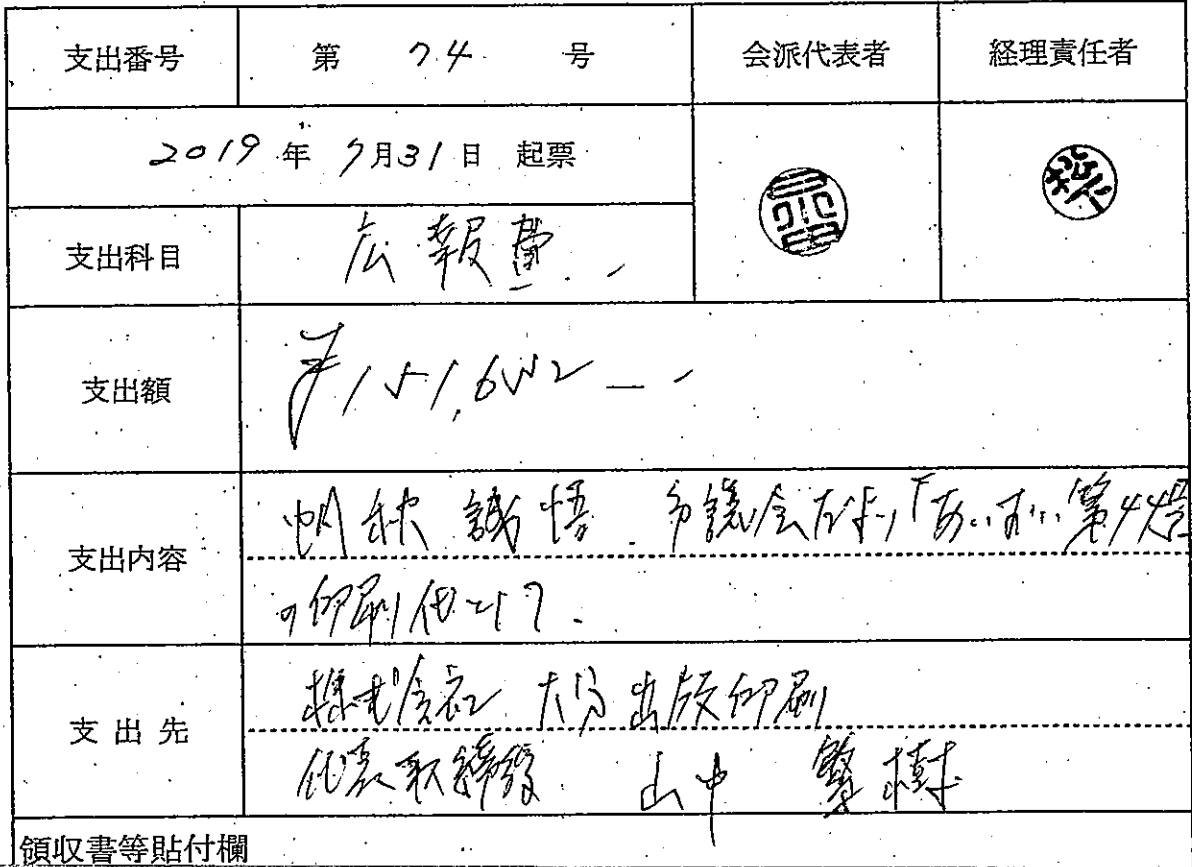 支出番号 第 74 号 会派代表者 経理責任者
2019年 7月31日 起票
支出科目 広報費
支出額
支出内容 帆秋誠悟 市議会だより「あいすい 第44号
の印刷代として
支出先 株式会社 大分出版印刷
代表取締役 山中 樹
領収書等貼付欄